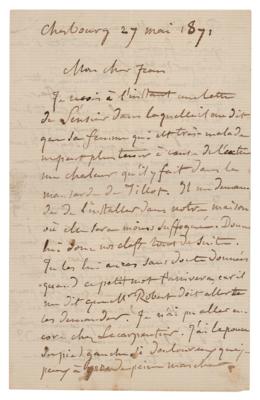 Cherbourg 27 mai 1871
Mon cher Jean
Je reçois à l'instant une lettre
de Sensier dans laquelle il me dit
que sa femme qui est très malade
ne peut plus tenir à cause de l'extrê
me chaleur qu'il y fait dans la
mansarde de Tillot. Il me deman
de de l'installer dans notre maison
où elle sera moins suffoquée. Donne
lui donc nos clefs tout de suite.
Tu les lui auras sans doute données
quand ce petit mot t'arrivera car il
me dit que Mr Robert doit aller te
les demander. Je n'ai pu aller en
core chez Lecarpentier. J'ai le pouce
du pied gauche si douloureux que je
peux à grande peine marcher